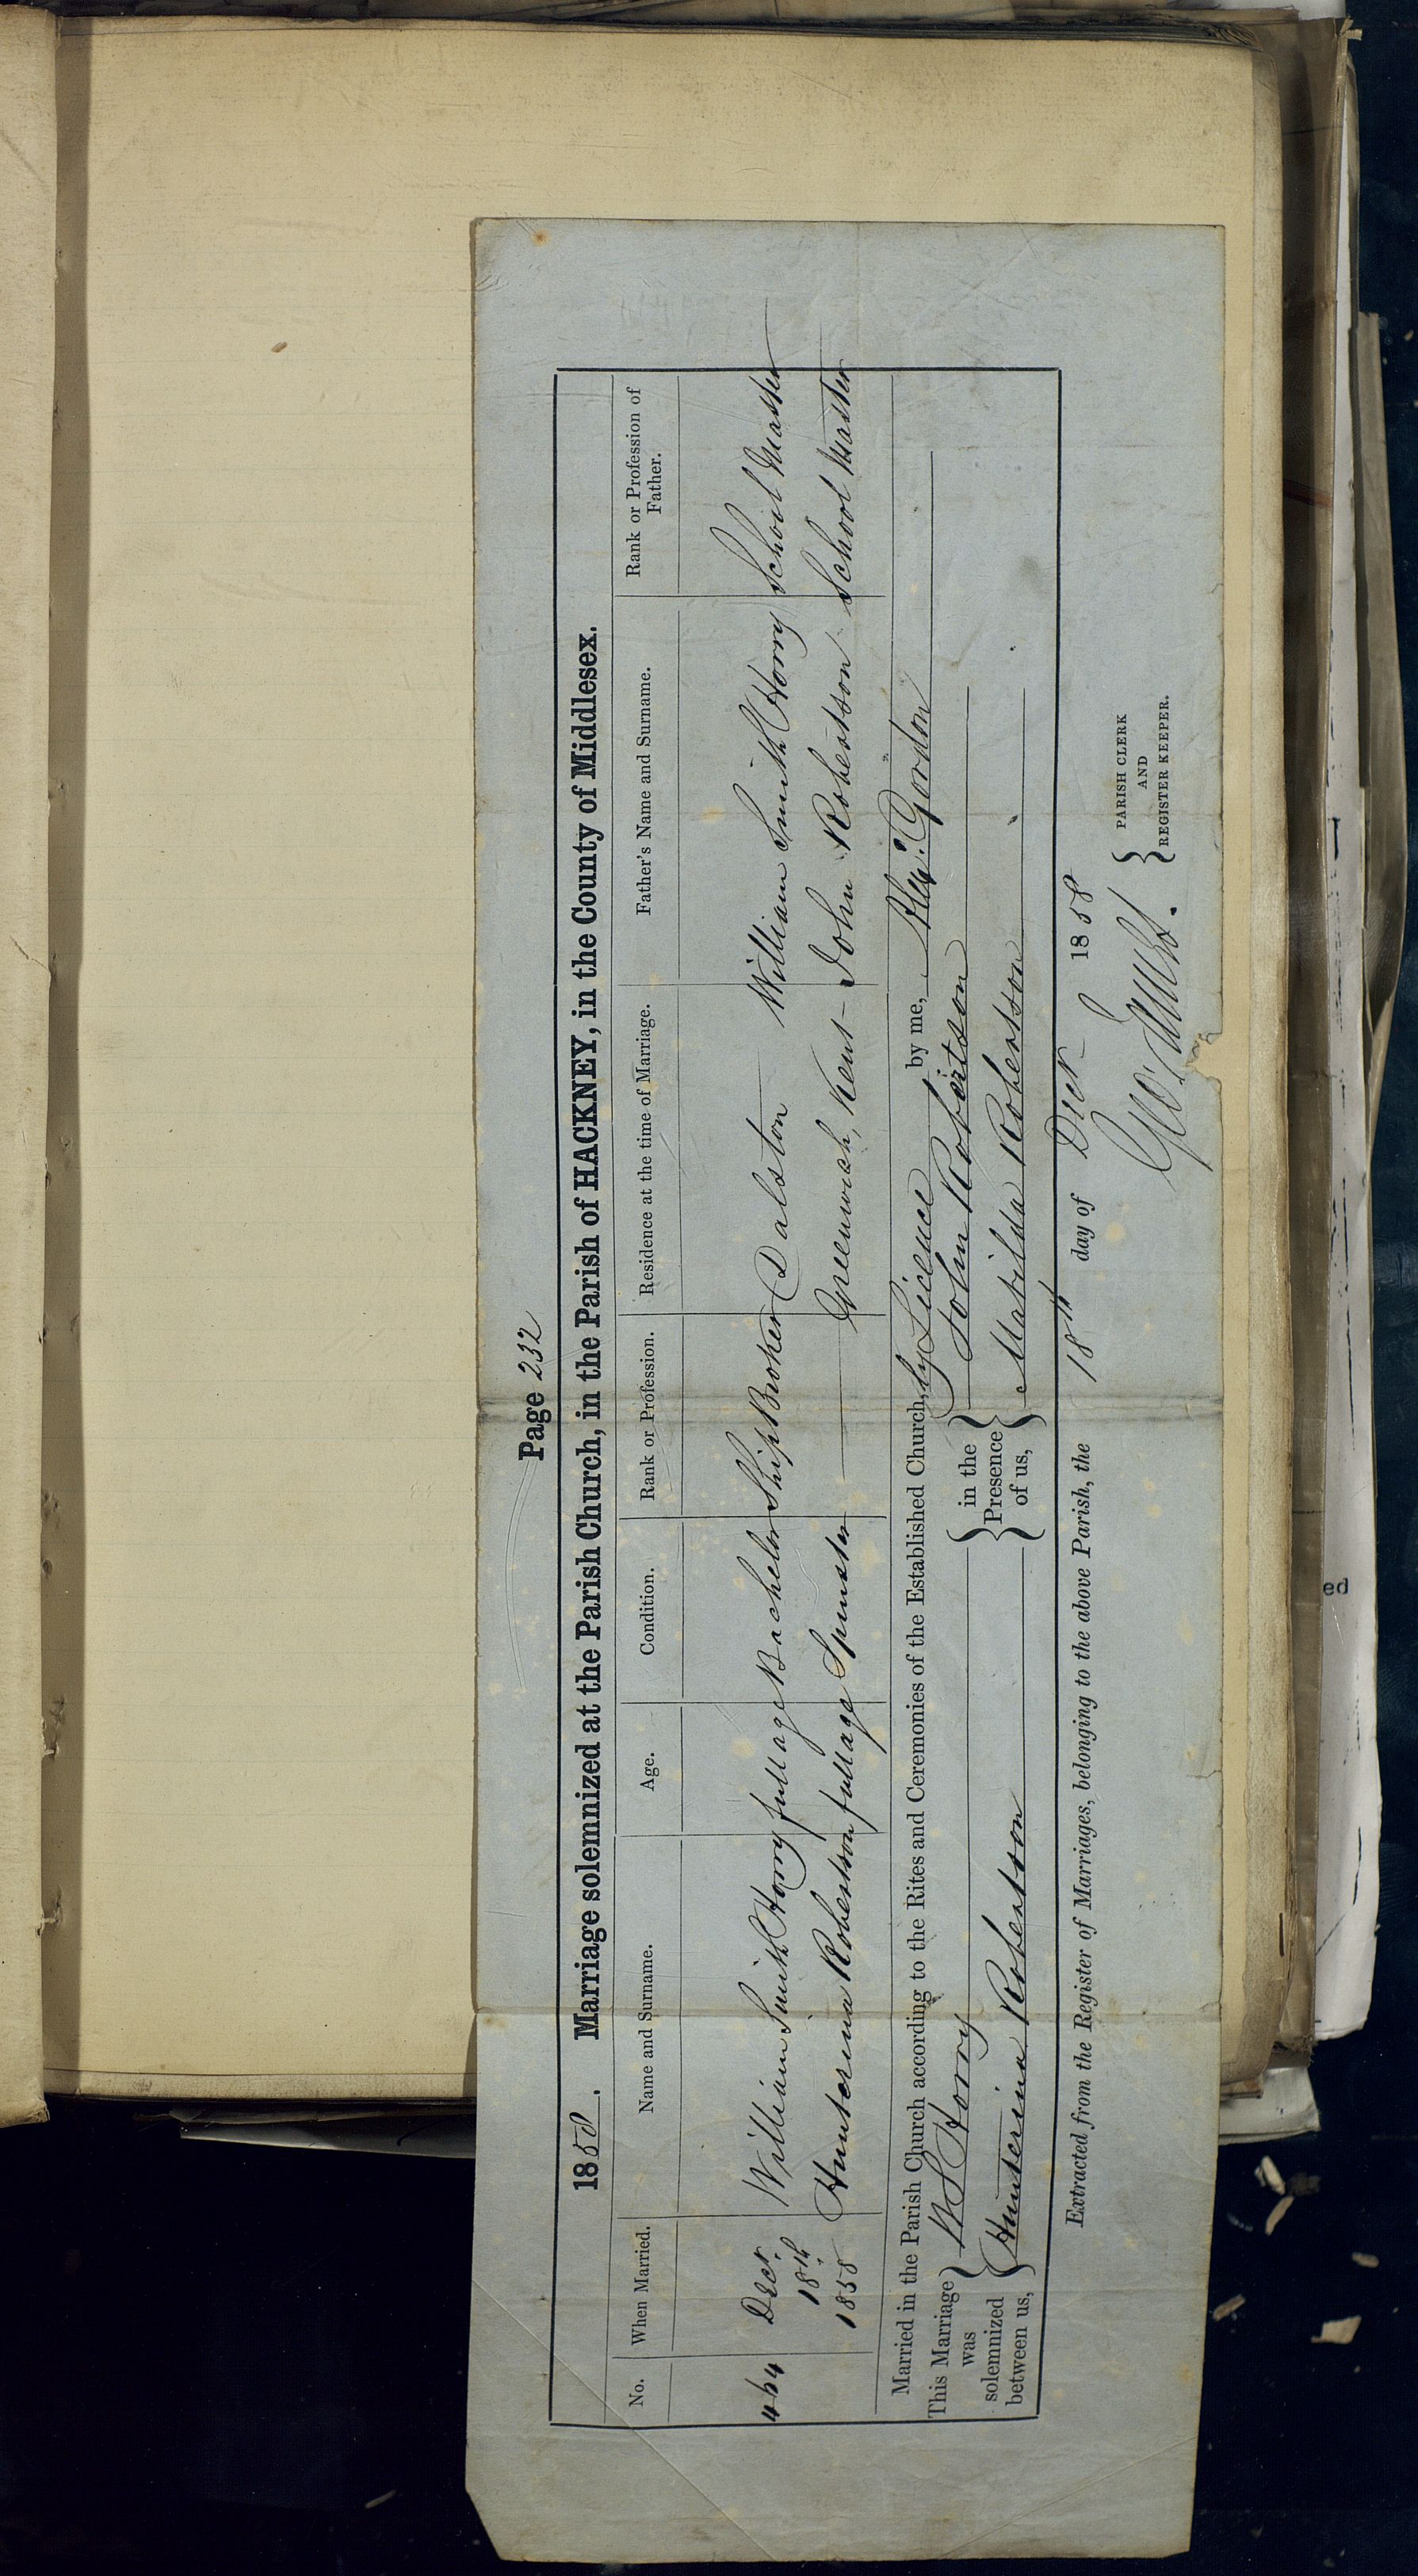 Page 232
1858. Marriage solemnized at the Parish Church, in the Parish of HACKNEY, in the County of Middlesex.
No. When Married. Name and Surname. Age. Condition. Rank or Profession. Residence at the time of Marriage. Father's Name and Surname. Rank or Profession of Father.
464 Decr. 18th 1858
William Smith Horry full age Bachelor Ship Broker Dalston William Smith Horry School Master
Hunterina Robertson full age Spinster — Greenwich, Kent — John Robertson School Master
Married in the Parish Church according to the Rites and Ceremonies of the Established Church, by Licence by me, Alexr. Gordon
This Marriage was solemnized between us, { W S Horry
Hunterina Robertson } in the Presence of us, { John Robertson
Matilda Robertson
Extracted from the Register of Marriages, belonging to the above Parish, the 18th day of Decr 1858
Geo: } PARISH CLERK
AND
REGISTER KEEPER.
ed